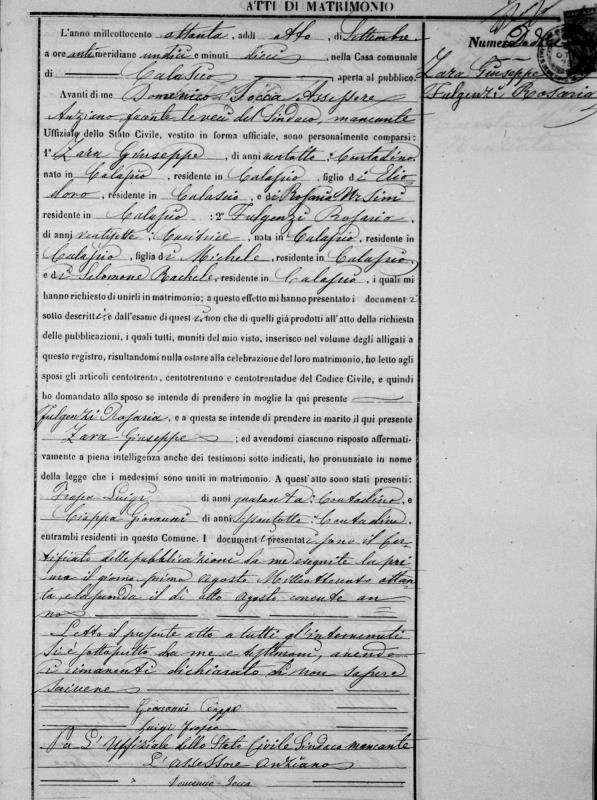 ATTI DI MATRIMONIO
L'anno milleottocento ottanta, addì otto, di Settembre
a ore antimeridiane undici e minuti dieci, nella Casa comunale
di Calascio, aperta al pubblico.
Avanti di me Domenico Assessore
Anziano facente le veci del Sindaco, mancante
Uffiziale dello Stato Civile, vestito in forma ufficiale, sono personalmente comparsi:
1° Zara Giuseppe, di anni ventotto: Contadino
nato in Calascio, residente in Calascio, figlio di Elio
doro, residente in Calascio, e di Rosaria
residente in Calascio: 2° Fulgenzi Rosaria,
di anni ventisette: Cucitrice, nata in Calascio, residente in
Calascio, figlia di Michele, residente in Calascio,
e di Silomone Rachele, residente in Calascio, i quali mi
hanno richiesto di unirli in matrimonio; a questo effetto mi hanno presentato i documenti
sotto descritti; e dall'esame di questi, non che di quelli già prodotti all'atto della richiesta
delle pubblicazioni, i quali tutti, muniti del mio visto, inserisco nel volume degli alligati a
questo registro, risultandomi nulla ostare alla celebrazione del loro matrimonio, ho letto agli
sposi gli articoli centotrenta, centotrentuno e centotrentadue del Codice Civile, e quindi
ho domandato allo sposo se intende di prendere in moglie la qui presente
Fulgenzi Rosaria, e a questa se intende di prendere in marito il qui presente
Zara Giuseppe; ed avendomi ciascuno risposto affermati-
vamente a piena intelligenza anche dei testimoni sotto indicati, ho pronunziato in nome
della legge che i medesimi sono uniti in matrimonio. A quest'atto sono stati presenti:
Luigi di anni quaranta: Contadino e
Ciappa Giovanni di anni sessantotto: Contadino
entrambi residenti in questo Comune. I documenti presentati sono il cer-
tificato delle pubblicazioni da me eseguite la pri
ma il giorno primo Agosto Milleottocento ottan
ta e la seconda il dì otto Agosto corrente an
no
Letto il presente atto a tutti gl'intervenuti
si è sottoscritto da me e testimoni, avendo
i rimanenti dichiarato di non sapere
scrivere
Giovanni Ciappa
Luigi
Per L'Uffiziale dello Stato Civile Sindaco mancante
L'Assessore Anziano
Domenico
Numero
Zara Giuseppe
Fulgenzi Rosaria